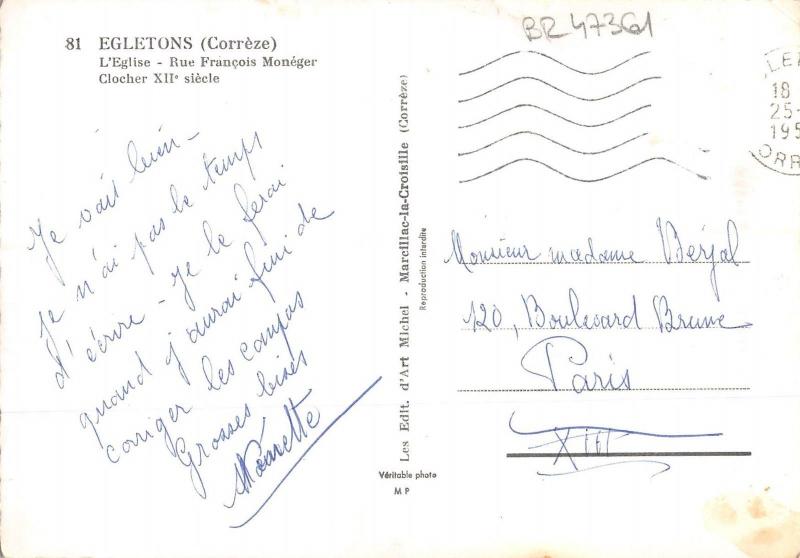 BR 47361
81 EGLETONS (Corrèze)
L'Eglise - Rue François Monéger
Clocher XIIe siècle
Je vais bien -
je n'ai pas le temps
d'écrire - je le ferai
quand j'aurai fini de
corriger les compos
Grosses bises
Les Edit. d'Art Michel - Marcillac-la-Croisille (Corrèze)
Reproduction interdite
Véritable photo
M P
18
25-
195
ORR
Monsieur madame Berjal
120, Boulevard Brune
Paris
XIII